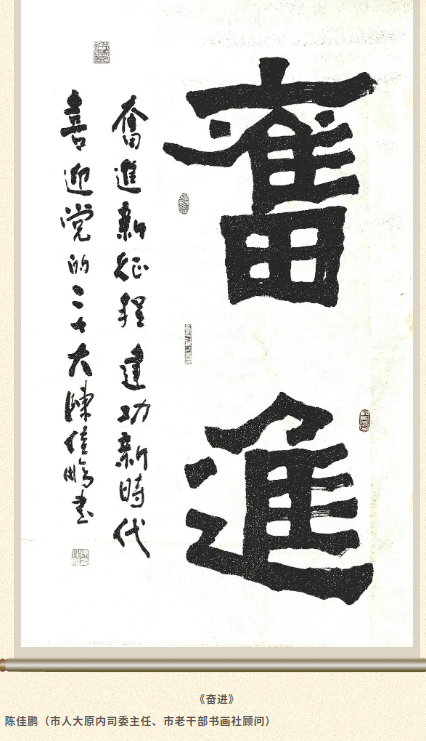 奮進
奮進新征程建功新時代
喜迎党的二十大陳佳鵬书
《奋进》
陈佳鹏（市人大原内司委主任、市老干部书画社顾问）